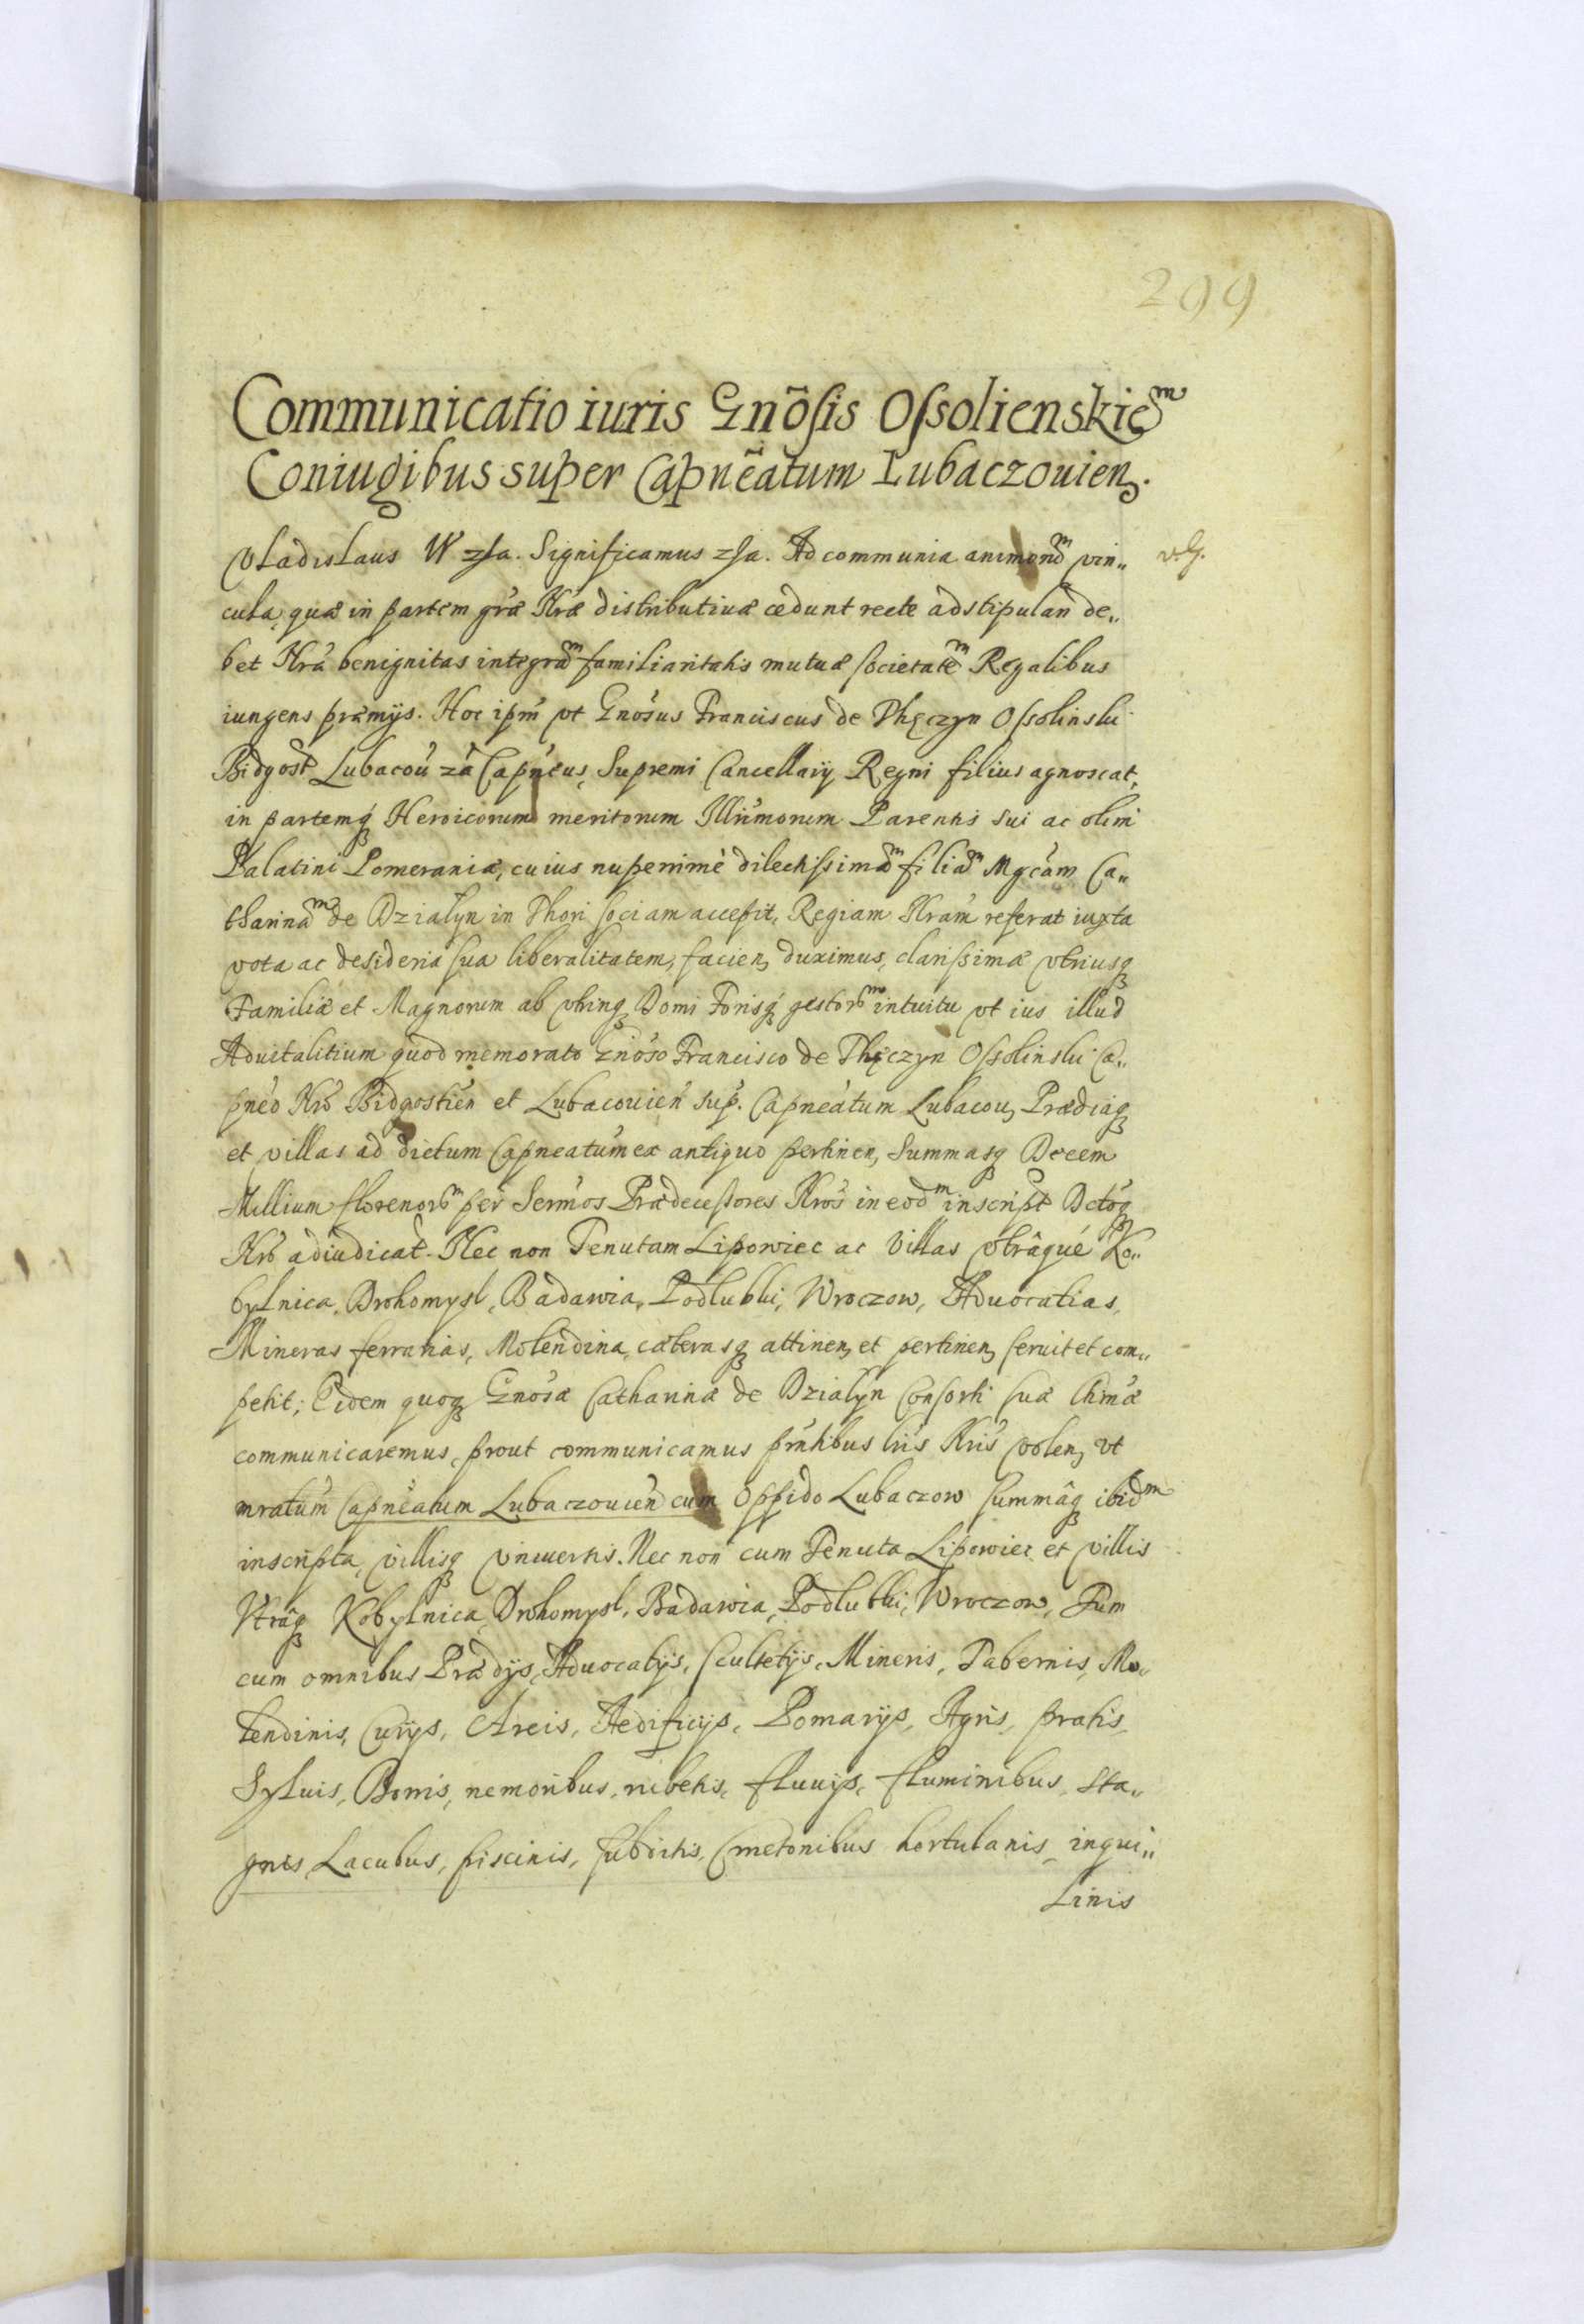 299
Communicatio iuris Gnosis Ossolienskiem
Coniugibus super Capneatum Lubaczouien.
Vladislaus IV zsa. Significamus zsa. Ad communia animorum vin„
v.G.
cula, quæ in partem græ Nræ distributiuæ cedunt recte adstipulari de„
bet Nra benignitas integram familiaritatis mutuæ societatem Regalibus
iungens præmijs. Hoc ipm vt Gnosus Franciscus de Thęczyn Ossolinski
Bidgost Lubacou za Capneus, Supremi Cancellarij Regni filius agnoscat,
in partemq Heroicorum meritorum Illrimorum Parentis sui ac olim
Palatini Pomeraniæ, cuius nuperrimè dilectissimam filiam Mgcam Ca„
tharinam de Dzialyn in Thori sociam accepit, Regiam Nram referat iuxta
vota ac desideria sua liberalitatem, facien, duximus, clarissimæ vtriusq
Familiæ et Magnorum ab vtrinq Domi Forisq gestorum intuitu vt ius illud
Aduitalitium quod memorato Gnoso Francisco de Thęczyn Ossolinski Ca„
pneo Nro Bidgostien et Lubacouien sup. Capneatum Lubacou, Prædiaq
et villas ad dictum Capneatum ex antiquo pertinen, Summasq Decem
Millium florenorum per Sermos Prædecessores Nros in eodm inscript Dctoq
Nro adiudicat. Nec non Tenutam Lipowiec ac Villas vtrâqué Ko„
bylnica, Drohomysl, Badawia, Podlubki, Wroczow, Aduocatias,
Mineras ferrarias, Molendina, cæterasq attinen, et pertinen, seruit et com„
petit; Eidem quoq Gnosæ Catharinæ de Dzialyn Consorti suæ Chmæ
communicaremus, prout communicamus pntibus lris Nris volen, vt
mratum Capneatum Lubaczouien cum Oppido Lubaczow summâq ibidm
inscripta, villisq vniuersis. Nec non cum Tenuta Lipowiec et villis
Vtrâq Kobylnica, Drohomysl, Badawia, Podlubki, Wroczow, Tum
cum omnibus Prædijs, Aduocatijs, Scultetijs, Mineris, Tabernis, Mo„
lendinis, Curijs, Areis, Aedificijs, Pomarijs, Agris, pratis,
Syluis, Borris, nemoribus, rubetis, fluuijs, fluminibus, sta„
gnis Lacubus, piscinis, subditis, Cmetonibus hortulanis, inqui„
linis